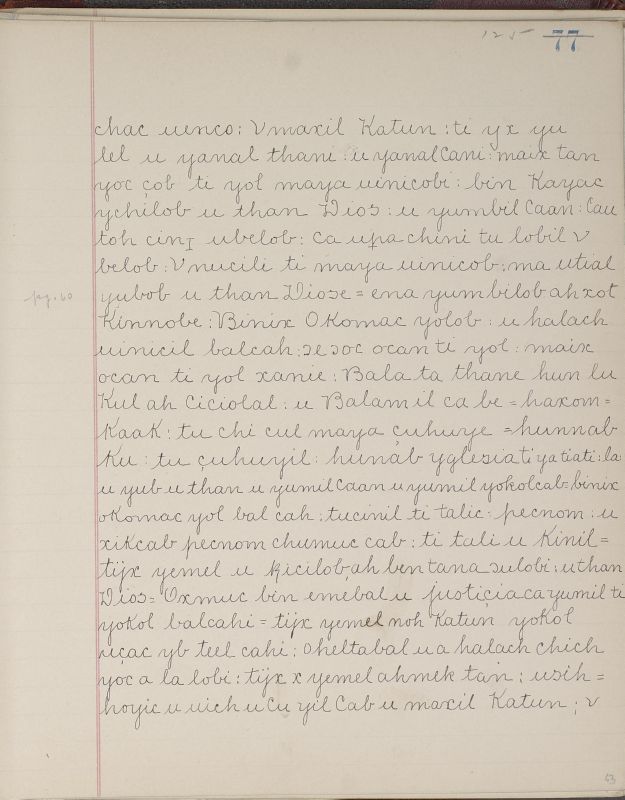 125 77
chac uenco: V maxil Katun: ti yx yu
lel u yanal thani: u yanal Cani: maix tan
yoc çob ti yol maya uinicobi: bin Kayac
ychilob u than Dios: u yumbil Caan: Cau
toh cinɪ ubelob: ca upa chini tu lobil v
belob: V nucili ti maya uinicob: ma utial
pg. 60
yubob u than Diose = ena yumbilob ah xot
Kinnobe: Binix OKomac yolob: u halach
uinicil balcah: ɔe ɔoc ocan ti yol: maix
ocan ti yol xanie: Bala ta thane hun lu
Kul ah Ciciolal: u Balamil ca be = haxom =
KaaK: tu chi cul maya çuhuye = hunnab
Ku: tu çuhuyil: hunab yglesia ti ya tiati: la
u yub u than u yumil Caan u yumil yokolcab = binix
oKomac yol bal cah: tucinil ti talic: pecnom: u
xikcab pecnom chumuc cab: ti tali u Kinil =
tijx yemel u Kicilob, ah ben tana ɔulobi: uthan
Dios = Oxmuc bin emebal u justiçia ca yumil ti
yoKol balcahi = tijx yemel noh Katun yoKol
uçac yb teel cahi: oheltabal u a halach chich
yoc a la lobi: tijx x yemel ahmek tan: uɔih =
hoyic u uich u Cu yil Cab u maxil Katun; v
63